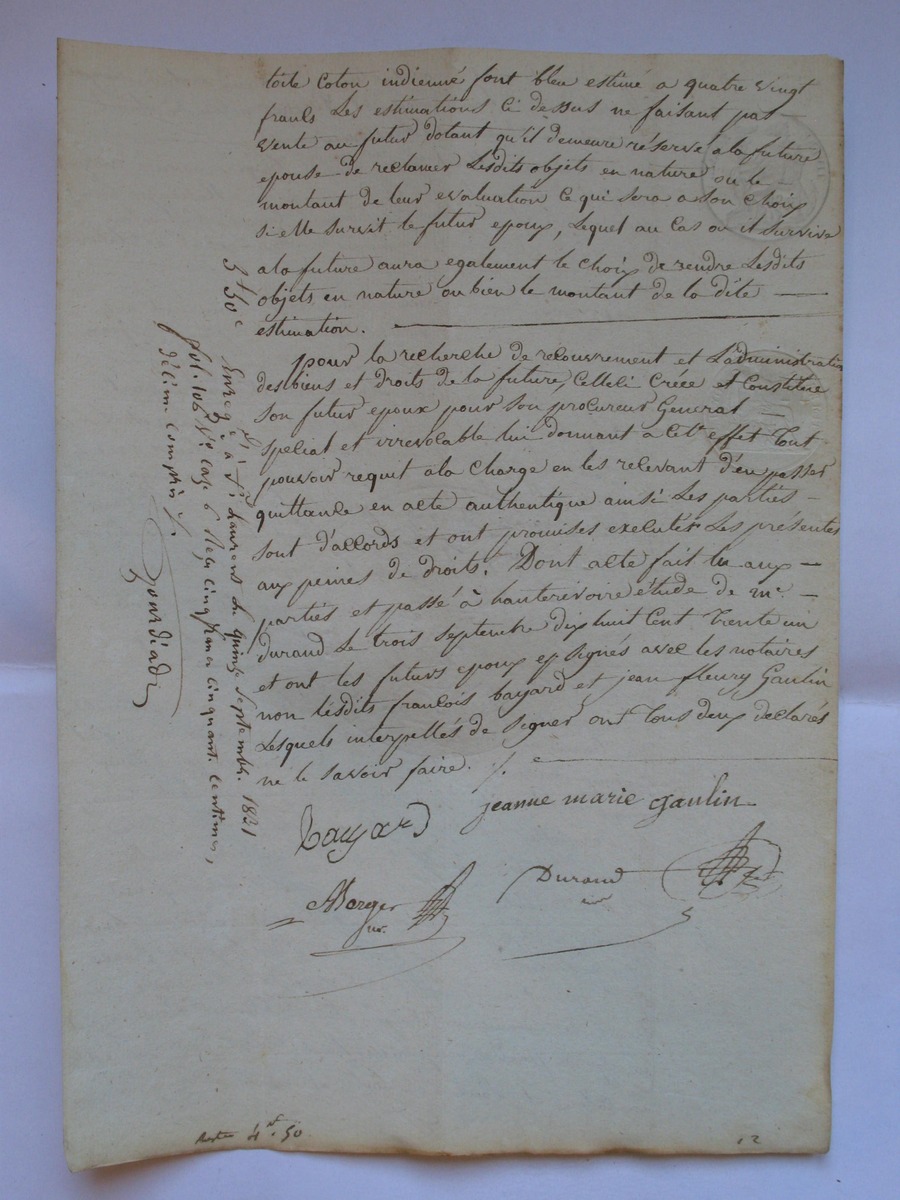 toile coton indienné font bleu estimé a quatre vingt
francs Les estimations ci dessus ne faisant pas
vente au futur dotant qu'il demeure réservé a la future
epouse de reclamer Lesdits objets en nature ou le
montant de leur evaluation ce qui sera a son choix
si elle survit le futur epoux, Lequel au cas ou il survive
a la future aura egalement le choix de rendre Lesdits
objets en nature ou bien le montant de la dite
estimation.
pour la recherche de recouvrement et L'administration
des biens et droits de la future, Celleci Créée et Constitue
son futur epoux pour son procureur General
special et irrevocable lui donnant a cet effet tout
pouvoir requit a la charge en les relevant d'en passer
quittance en acte authentique ainsi Les parties
sont d'accords et ont promises exécuter Les présentes
aux peines de droits. Dont acte fait lu aux
parties et passé à hauterivoire étude de me.
durand Le trois septembre dix huit cent trente un
et ont les futurs epoux ep signés avec les notaires
non lesdits françois bayard et jean fleury Gaulin
Lesquels interpellés de signer ont tous deux déclarés
ne le savoir faire. /.
Bayard jeanne marie gaulin
Durand
5f 50c
Enregé à St Laurent le quinze septembr. 1831
fol. 106 Vo case 6 Reçu cinq francs cinquante centimes,
décime compris /.
4f. 50